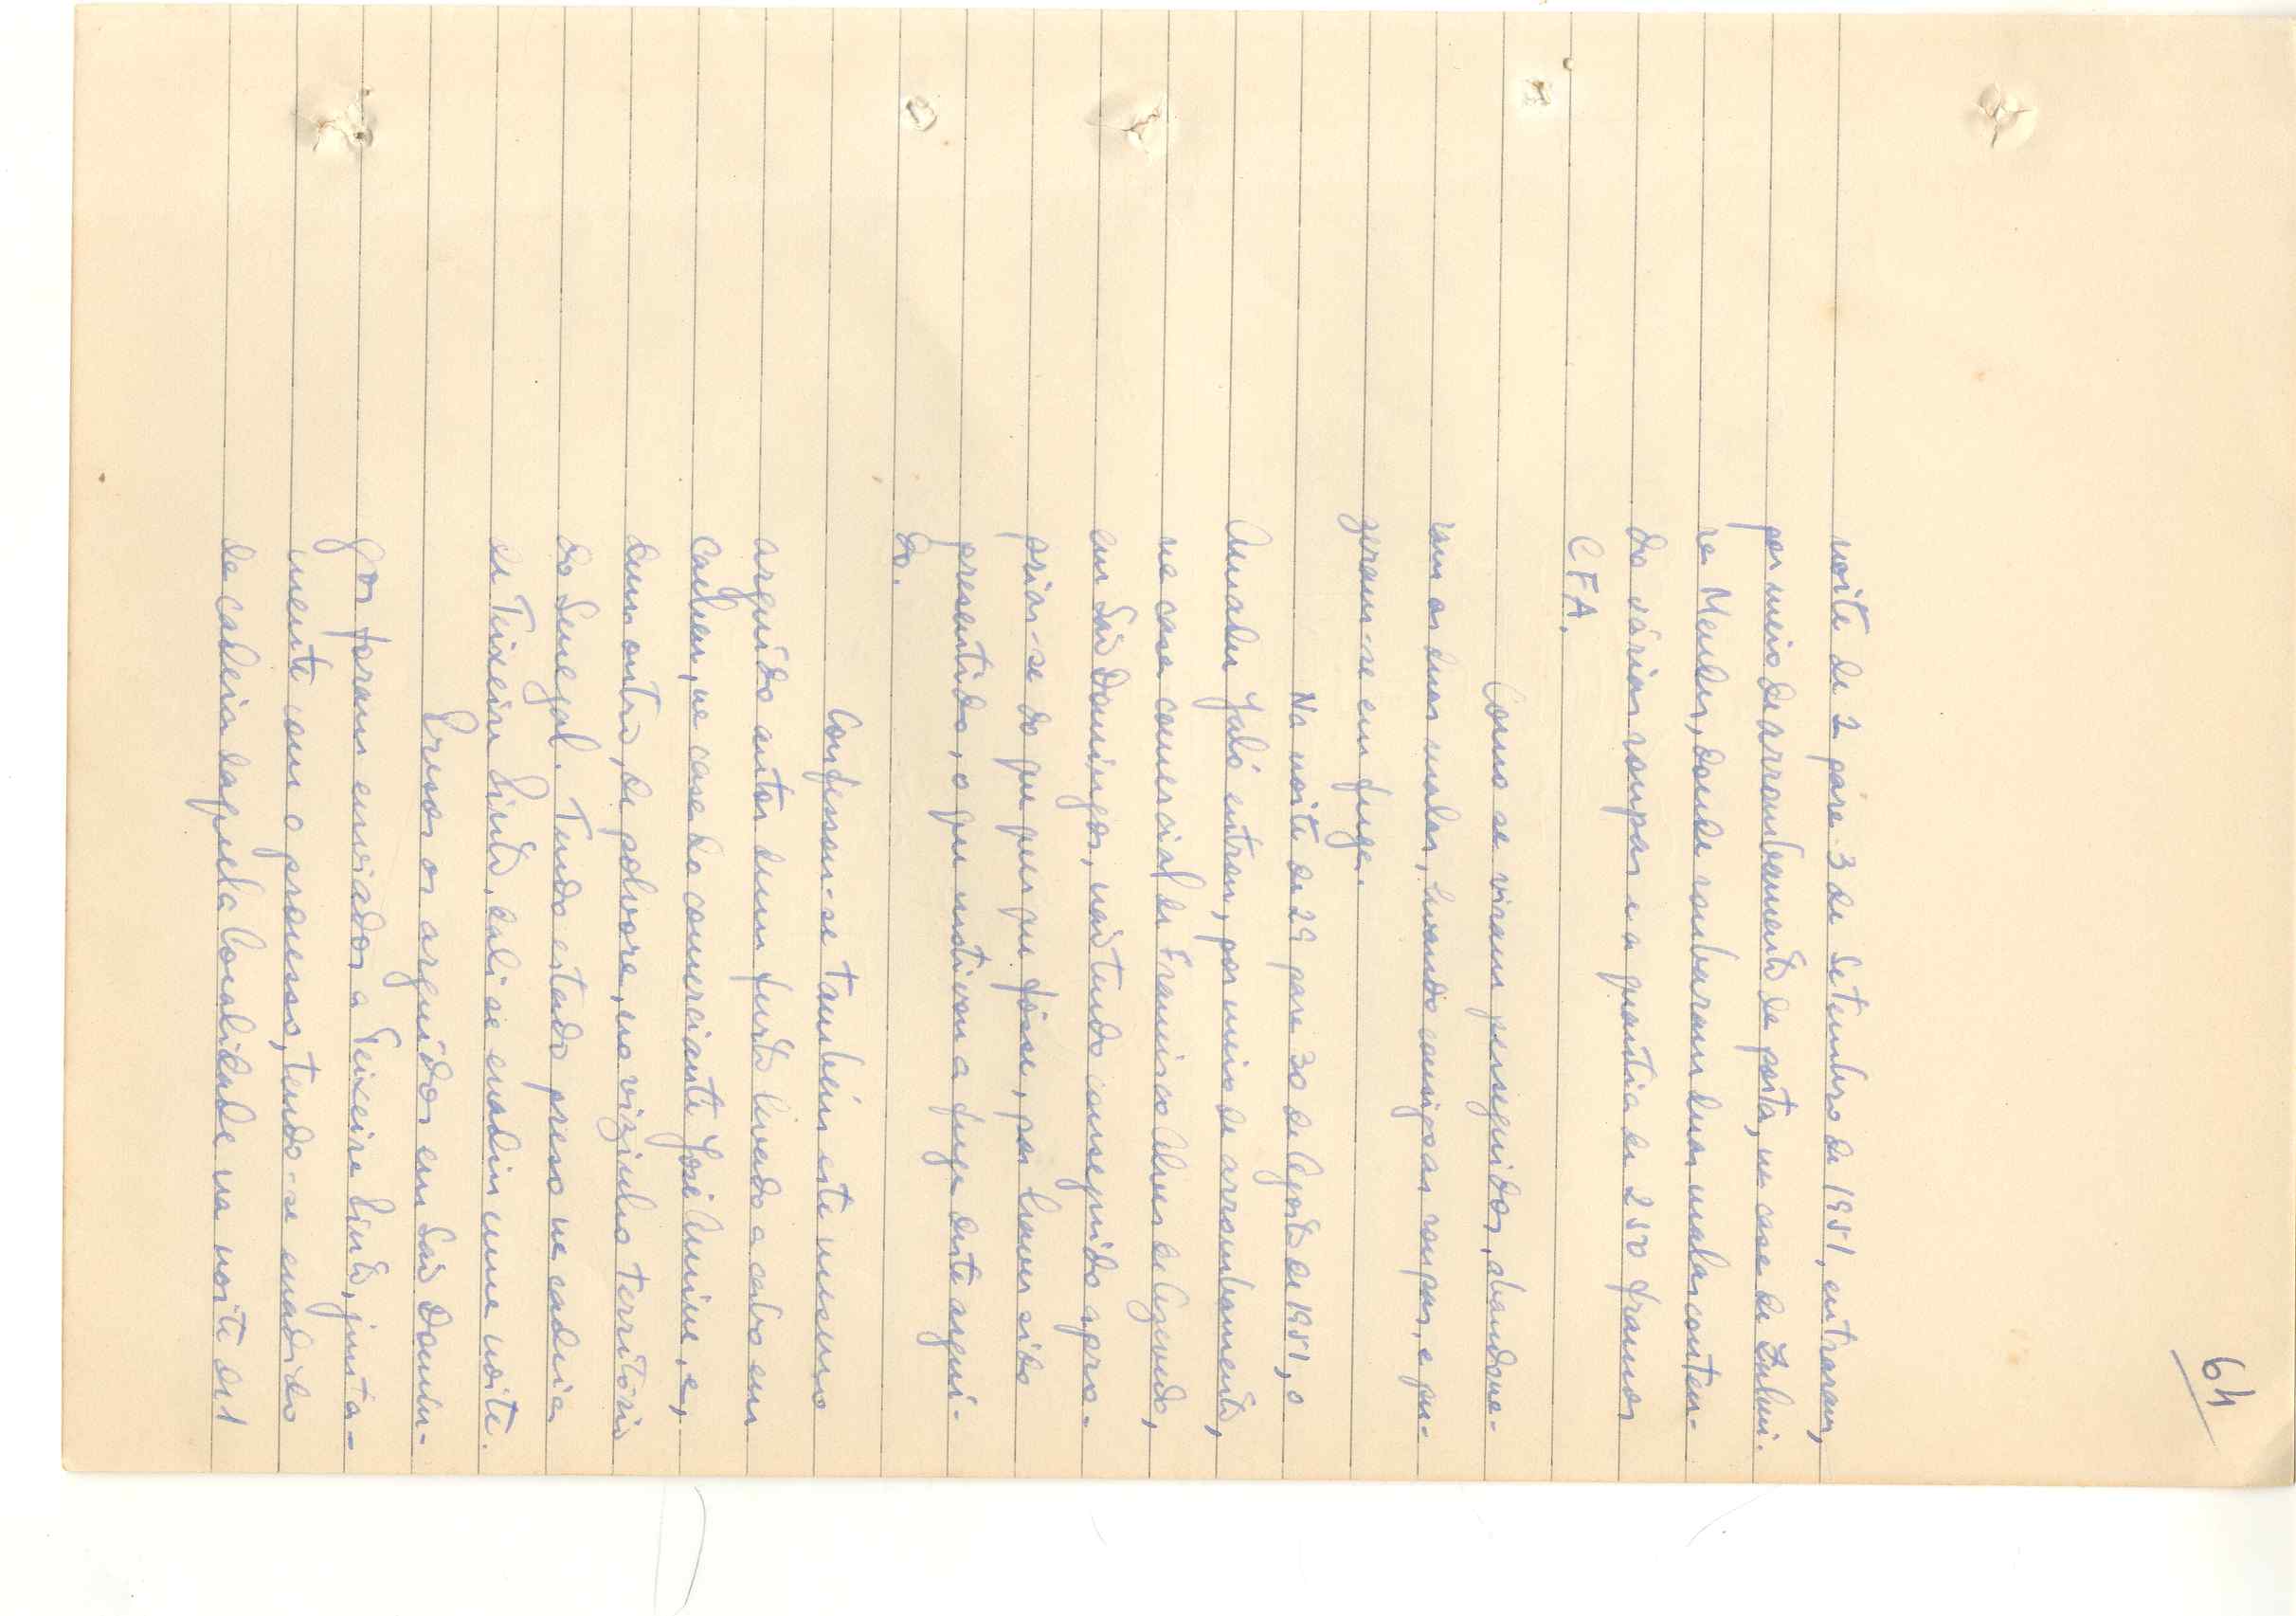 64
noite de 2 para 3 de Setembro de 1951, entraram,
por meio de arrombamento da porta, na casa de Zulmi-
ra Mendes, donde roubaram duas malas conten-
do várias roupas e a quantia de 250 francos
CFA.
Como se viram perseguidos, abandona-
ram as duas malas, levando consigo as roupas, e pu-
zeram-se em fuga.
Na noite de 29 para 30 de Agosto de 1951, o
Amadu Jaló entrou, por meio de arrombamento,
na casa comercial de Francisco Alves de Azevedo,
em São Domingos, não tendo conseguido apro-
priar-se do que quer que fôsse, por haver sido
presentido, o que motivou a fuga deste argui-
do.
Confessou-se também este mesmo
arguido autor dum furto levado a cabo em
Cacheu, na casa do comerciante José Amine, e,
dum outro, de polvora, no vizinho território
do Senegal. Tendo estado preso na cadeia
de Teixeira Pinto, dali se evadiu numa noite.
Presos os arguidos em São Domin-
gos foram enviados a Teixeira Pinto, junta-
mente com o processo, tendo-se evadido
da cadeia daquela localidade na noite de 1